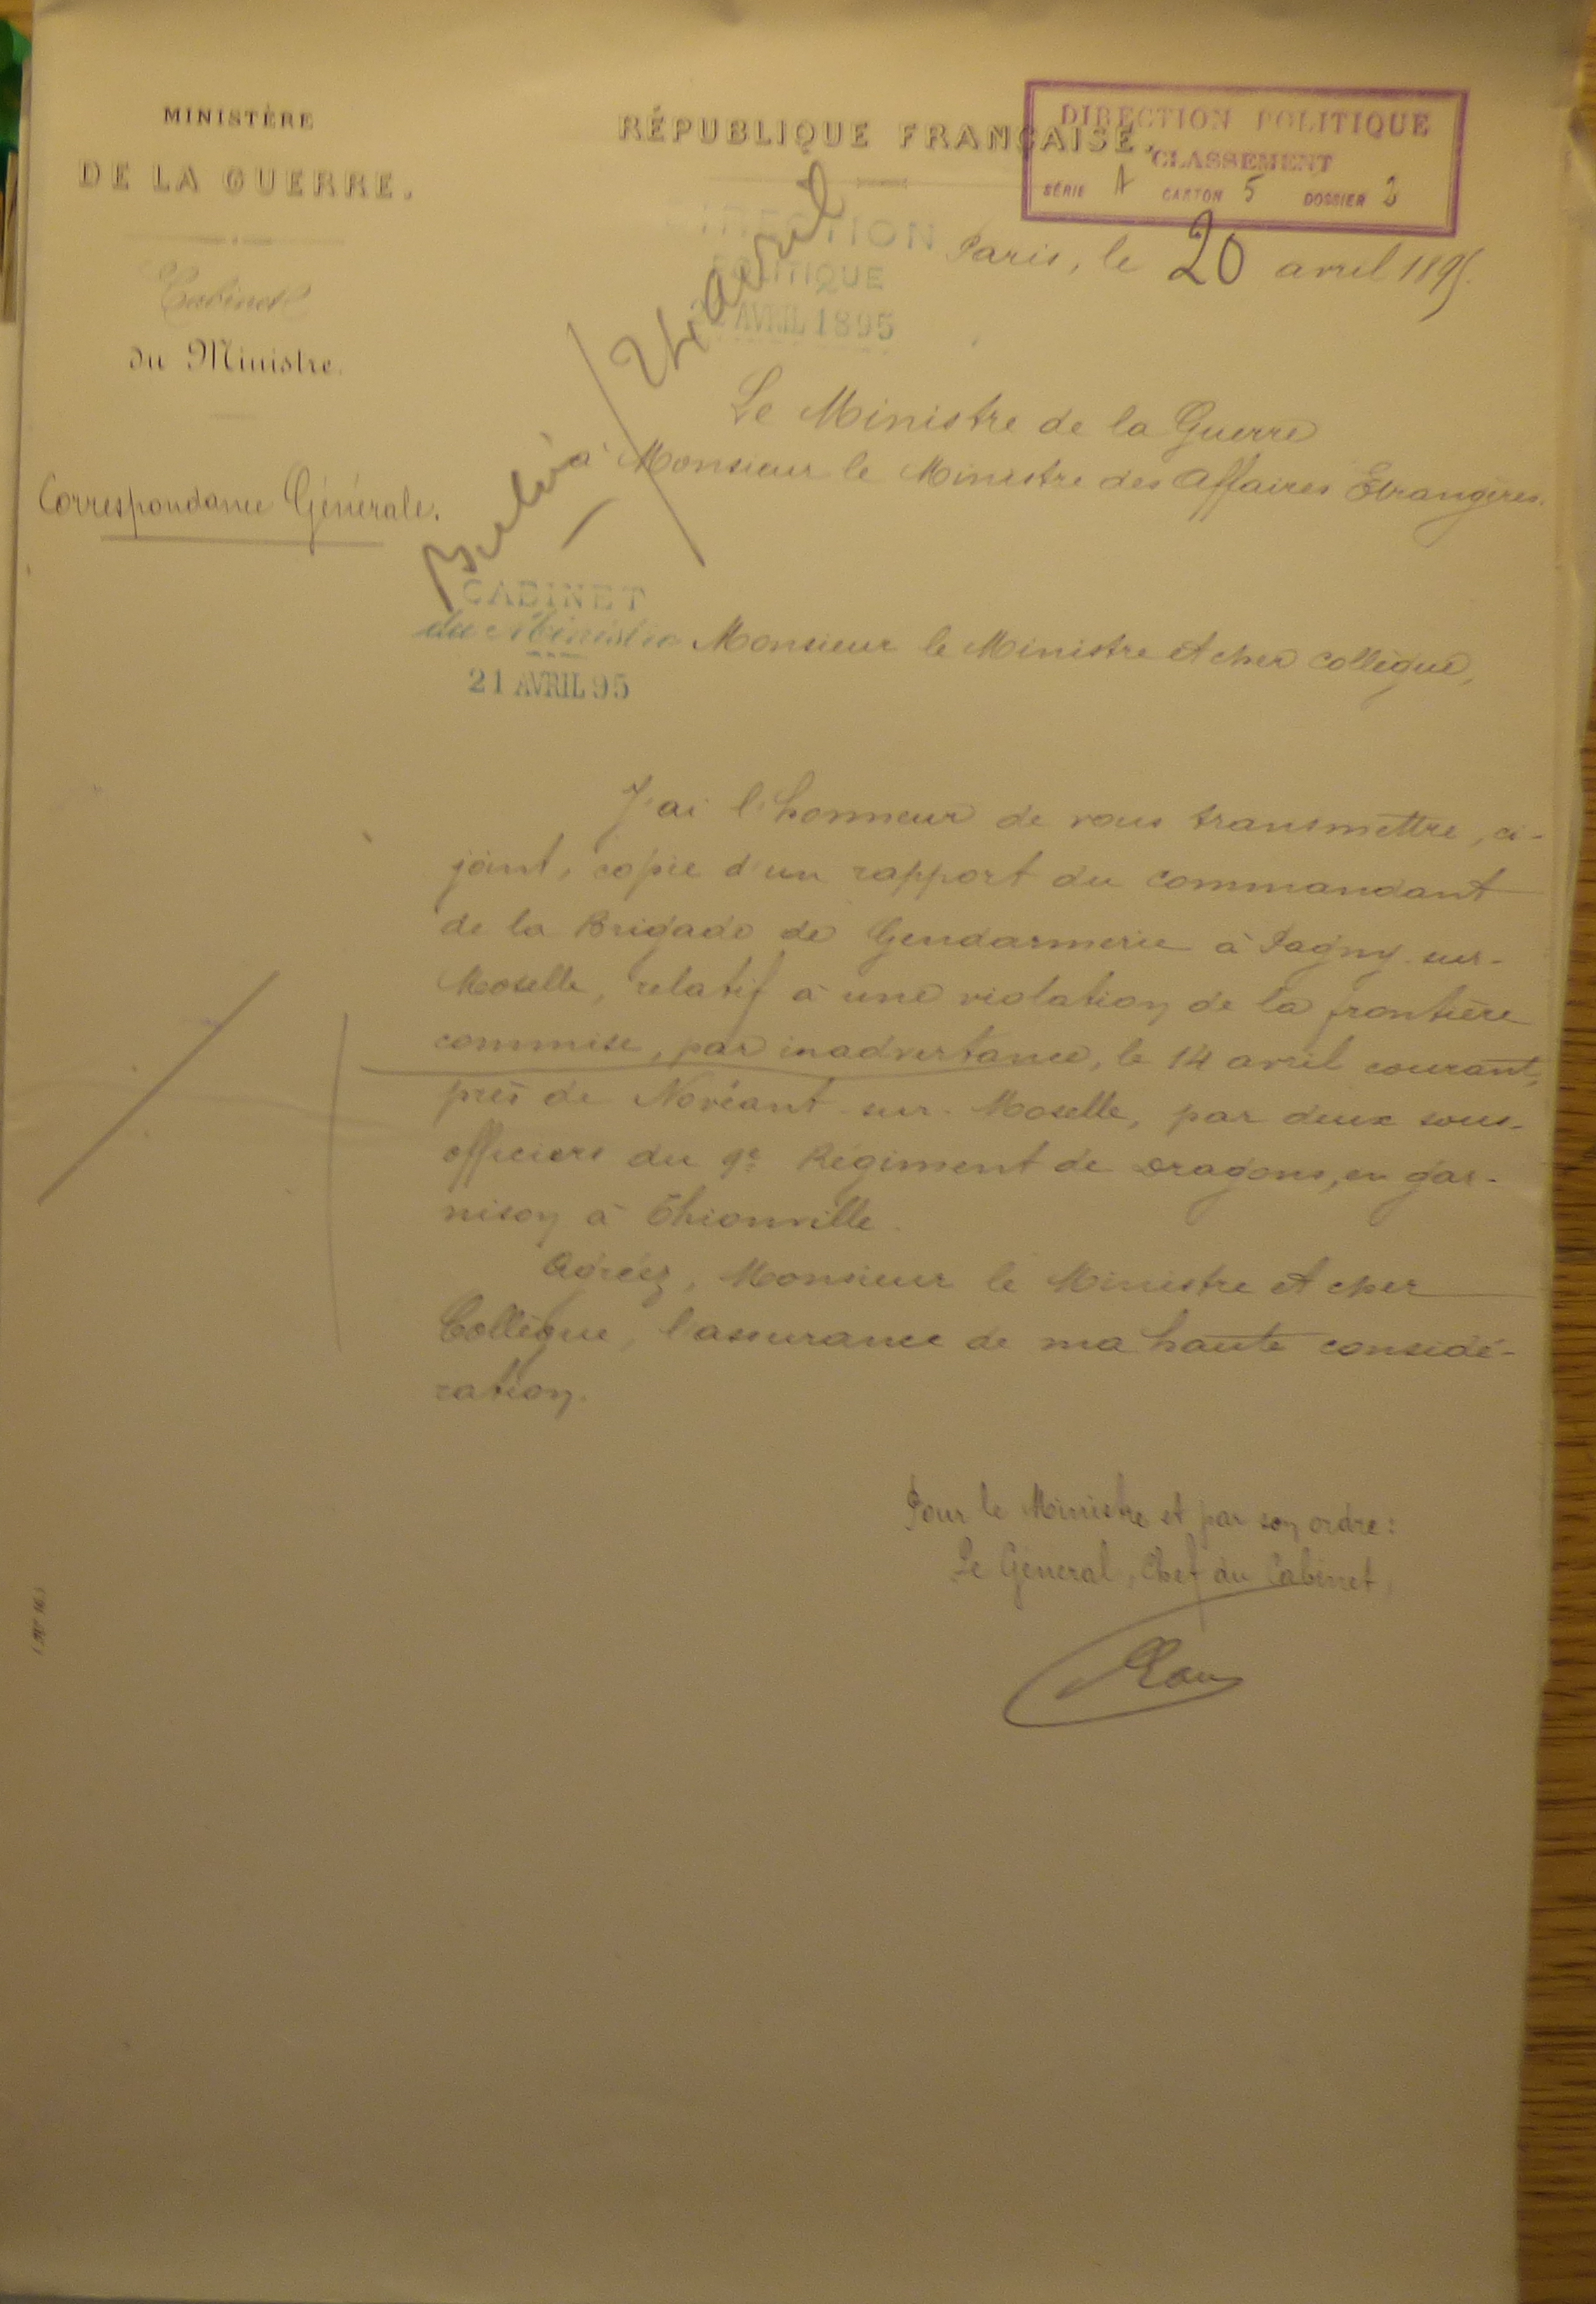 MINISTÈRE
DE LA GUERRE.
Cabinet
du Ministre.
Correspondance Générale.
RÉPUBLIQUE FRANÇAISE.
DIRECTION POLITIQUE
CLASSEMENT
SÉRIE A CARTON 5 DOSSIER
DIRECTION
POLITIQUE
AVRIL 1895
Paris, le 20 avril 1895.
24 avril
Berlin
Le Ministre de la Guerre
à Monsieur le Ministre des Affaires Etrangères.
CABINET
du Ministre
21 AVRIL 95
Monsieur le Ministre et cher collègue,
J'ai l'honneur de vous transmettre, ci-
joint, copie d'un rapport du commandant
de la Brigade de Gendarmerie à Pagny-sur-
Moselle, relatif à une violation de la frontière
commise, par inadvertance, le 14 avril courant,
près de Novéant-sur-Moselle, par deux sous-
officiers du 9e Régiment de Dragons, en gar-
nison à Thionville.
Agréez, Monsieur le Ministre et cher
Collègue, l'assurance de ma haute considé-
ration.
Pour le Ministre et par son ordre:
Le Général, Chef du Cabinet,